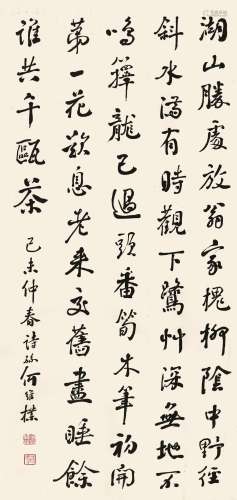 湖山勝處放翁家槐柳陰中野徑
斜水滿有時觀下鷺艸深無地不
鳴籜龍已過頭番筍木筆初開
第一花歎息老來交舊盡睡餘
誰共午甌茶
己未仲春詩孫何維樸